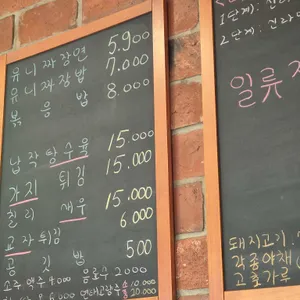 유니짜장면 5.900
유니짜장밥 7.000
볶음밥 8.000
납작탕수육 15.000
가지튀김 15.000
칠리새우 15.000
교자튀김 6.000
공깃밥 500
소주 맥주 4000 음료수 2000
6000 연태고량주 소 10.000
20.000
1단계:
2단계:
일류
돼지고기
각종야채
고춧가루